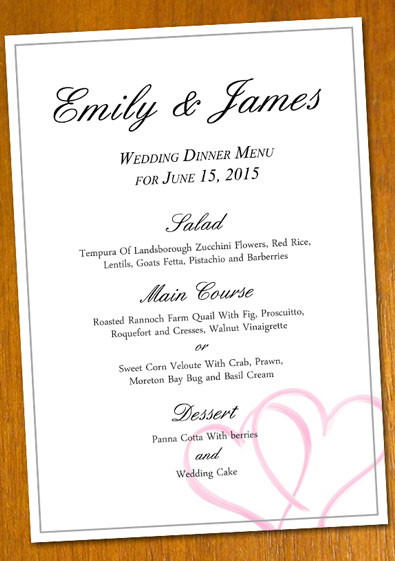 Emily & James
Wedding Dinner Menu
for June 15, 2015
Salad
Tempura Of Landsborough Zucchini Flowers, Red Rice,
Lentils, Goats Fetta, Pistachio and Barberries
Main Course
Roasted Rannoch Farm Quail With Fig, Proscuitto,
Roquefort and Cresses, Walnut Vinaigrette
or
Sweet Corn Veloute With Crab, Prawn,
Moreton Bay Bug and Basil Cream
Dessert
Panna Cotta With berries
and
Wedding Cake